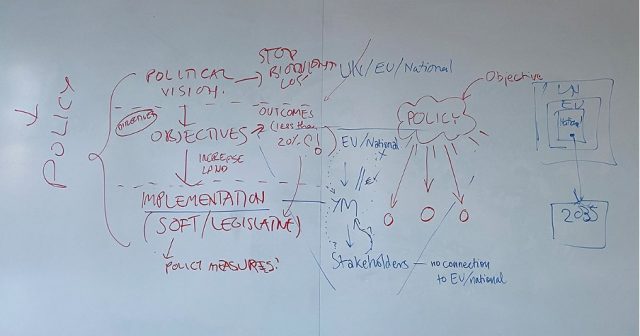 POLICY
POLITICAL
VISION.
STOP
BIODIVERSITY
LOS
UN/EU/National
DIRECTIVES
OBJECTIVES
OUTCOMES
(less than
20%)
INCREASE
LAND
IMPLEMENTATION
(SOFT/LEGISLATIVE)
POLICY MEASURES.
EU/National
YM
Stakeholders — no connection
to EU/national
Objective
POLICY
O O O
UN
EU
National
2035